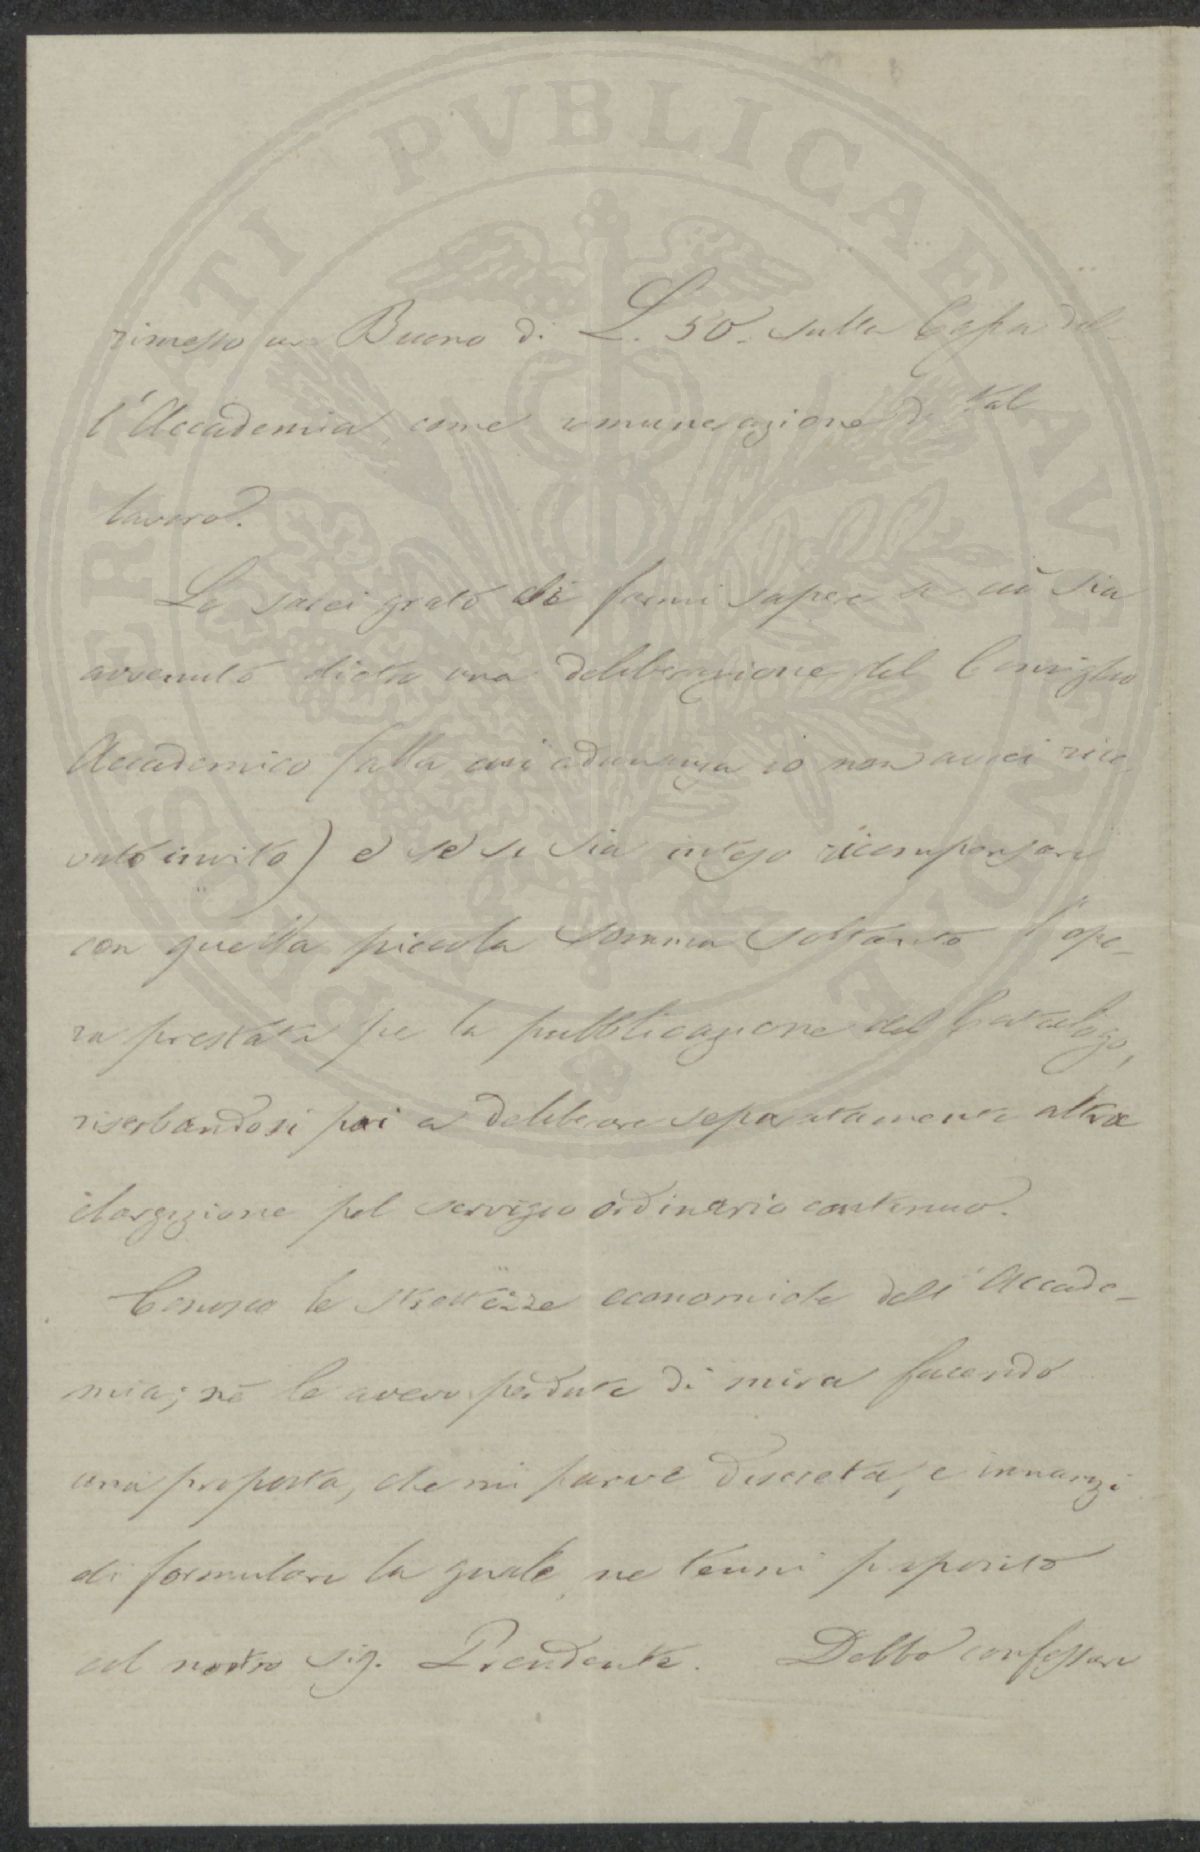 PROSPERITATI PVBLICAE AVGENDAE
rimesso un Buono di L. 50. sulla Cassa del-
l'Accademia, come rimunerazione di tal
lavoro.
Le sarei grato di farmi sapere se ciò sia
avvenuto dietro una deliberazione del Consiglio
Accademico (alla cui adunanza io non avrei rice-
vuto invito) e se si sia inteso ricompensare
con quella piccola somma soltanto l'ope-
ra prestata per la pubblicazione del Catalogo,
riserbandosi poi a deliberare separatamente altra
elargizione pel servigio ordinario continuo.
Conosco le strettezze economiche dell'Accade-
mia; nè le avevo perdute di mira facendo
una proposta, che mi parve discreta, e innanzi
di formulare la quale, ne tenni proposito
col nostro sig. Presidente. Debbo confessare